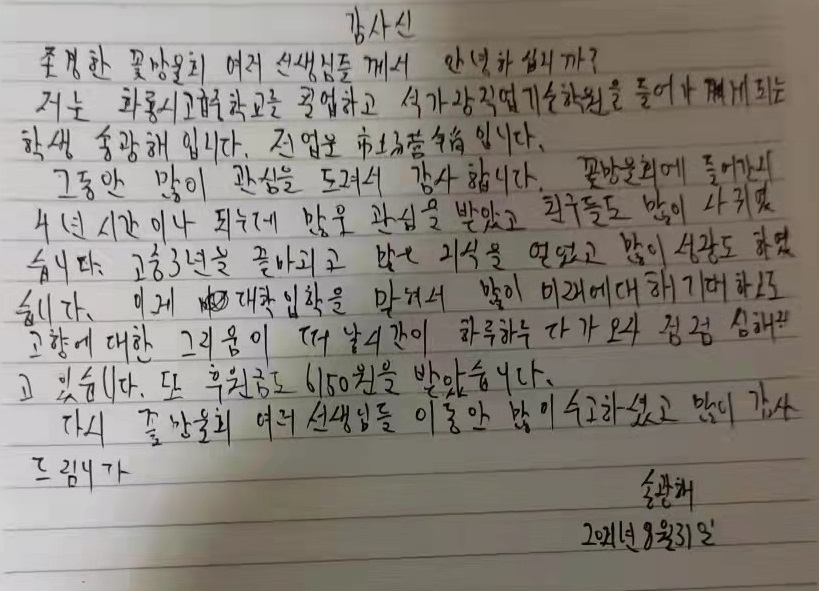 감사신
존경한 꽃망울회 여러 선생님들 께서 안녕하십니까?
저는 화룡시고급중학교를 졸업하고 석가장직업기술학원을 들어가 게 되는
학생 송광해 입니다. 전업은 市场营销입니다.
그동안 많이 관심을 도려서 감사 합니다. 꽃망울회에 들어간지
4년 시간이나 되누데 많은 관심을 받았고 친구들도 많이 사귀였
습니다. 고중3년을 끝마치고 많은 지식을 얻었고 많이 성장도 하였
습니다. 이제 대학입학을 맞혀서 많이 미래에대해 기대하고도
고향에 대한 그리움이 떠날시간이 하루하루 다가 오자 점점 심해지
고 있습니다. 또 후원금도 6150원을 받았습니다.
다시 꽃망울회 여러선생님들 이동안 많이 수고하셨고 많이 감사
드립니다
송광해
2021년 8월31일